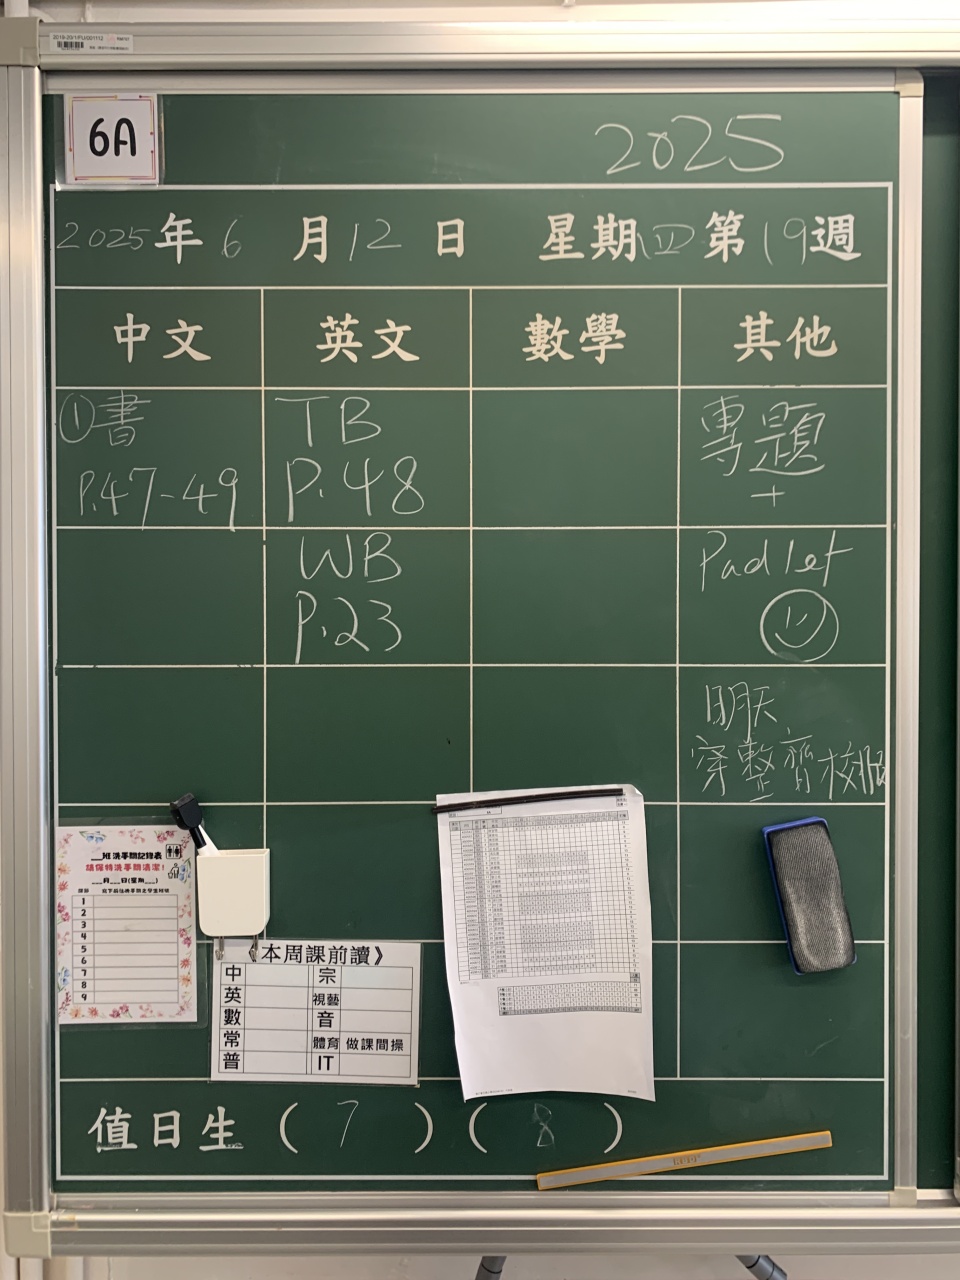 2019-20/1-PU/001112
6A
2025
2025年6月12日 星期四第19週
中文 英文 數學 其他
①書
P.47-49
TB
P.48
專題
+
WB
P.23
Padlet
明天
穿整齊校服
___班洗手間記錄表
請保持洗手間清潔!
___月___日(星期___)
1
2
3
4
5
6
7
8
9
《本周課前讀》
中 宗
英 視藝
數 音
常 體育 做課間操
普 IT
值日生 ( 7 ) ( 8 )